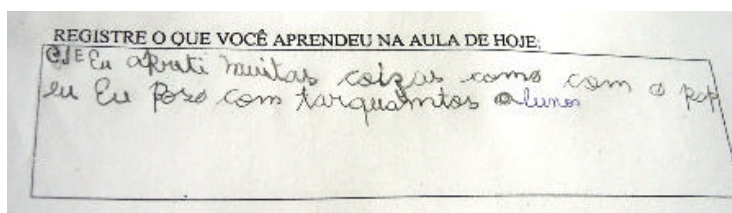 REGISTRE O QUE VOCÊ APRENDEU NA AULA DE HOJE:
Eu apruti muitas coizas como com o pap
eu Eu poso com tarquamtos alunos